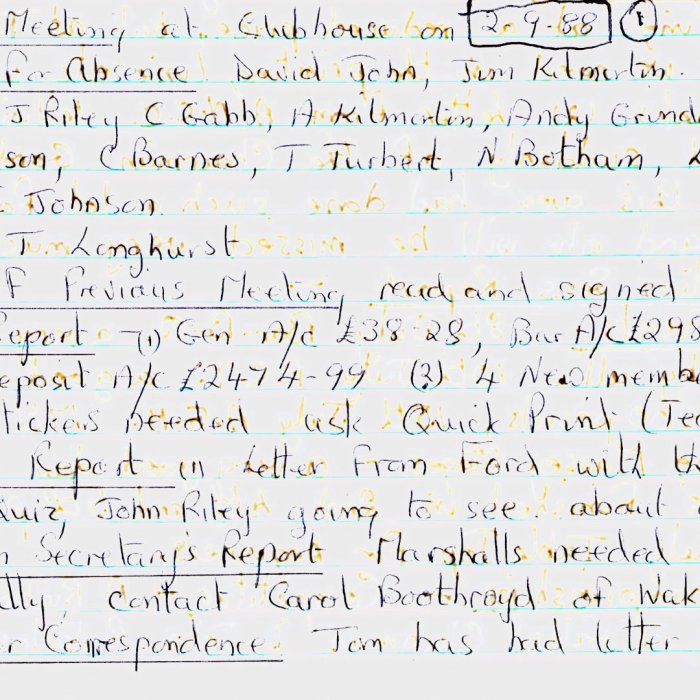 Meeting at Clubhouse on 2-9-88 (1)
for Absence David John, Jim Kilmartin.
J Riley C Gabb, A Kilmartin, Andy Grund
son, C Barnes, T Turbert, N Botham,
Johnson
T Longhurst
f Previous Meeting read and signed
Report (1) Gen A/c £38-28, Bar A/c £298
eposit A/c £2474-99 (2) 4 New membe
tickers needed ask Quick Print (Te
Report (1) Letter from Ford with th
Quiz, John Riley going to see about
n Secretary's Report Marshalls needed
lly, contact Carol Boothroyd of Wak
r Correspondence. Tom has had letter